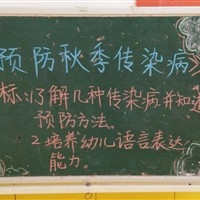 预防秋季传染病》
标:1了解几种传染病并知道
预防方法。
2.培养幼儿语言表达
能力。